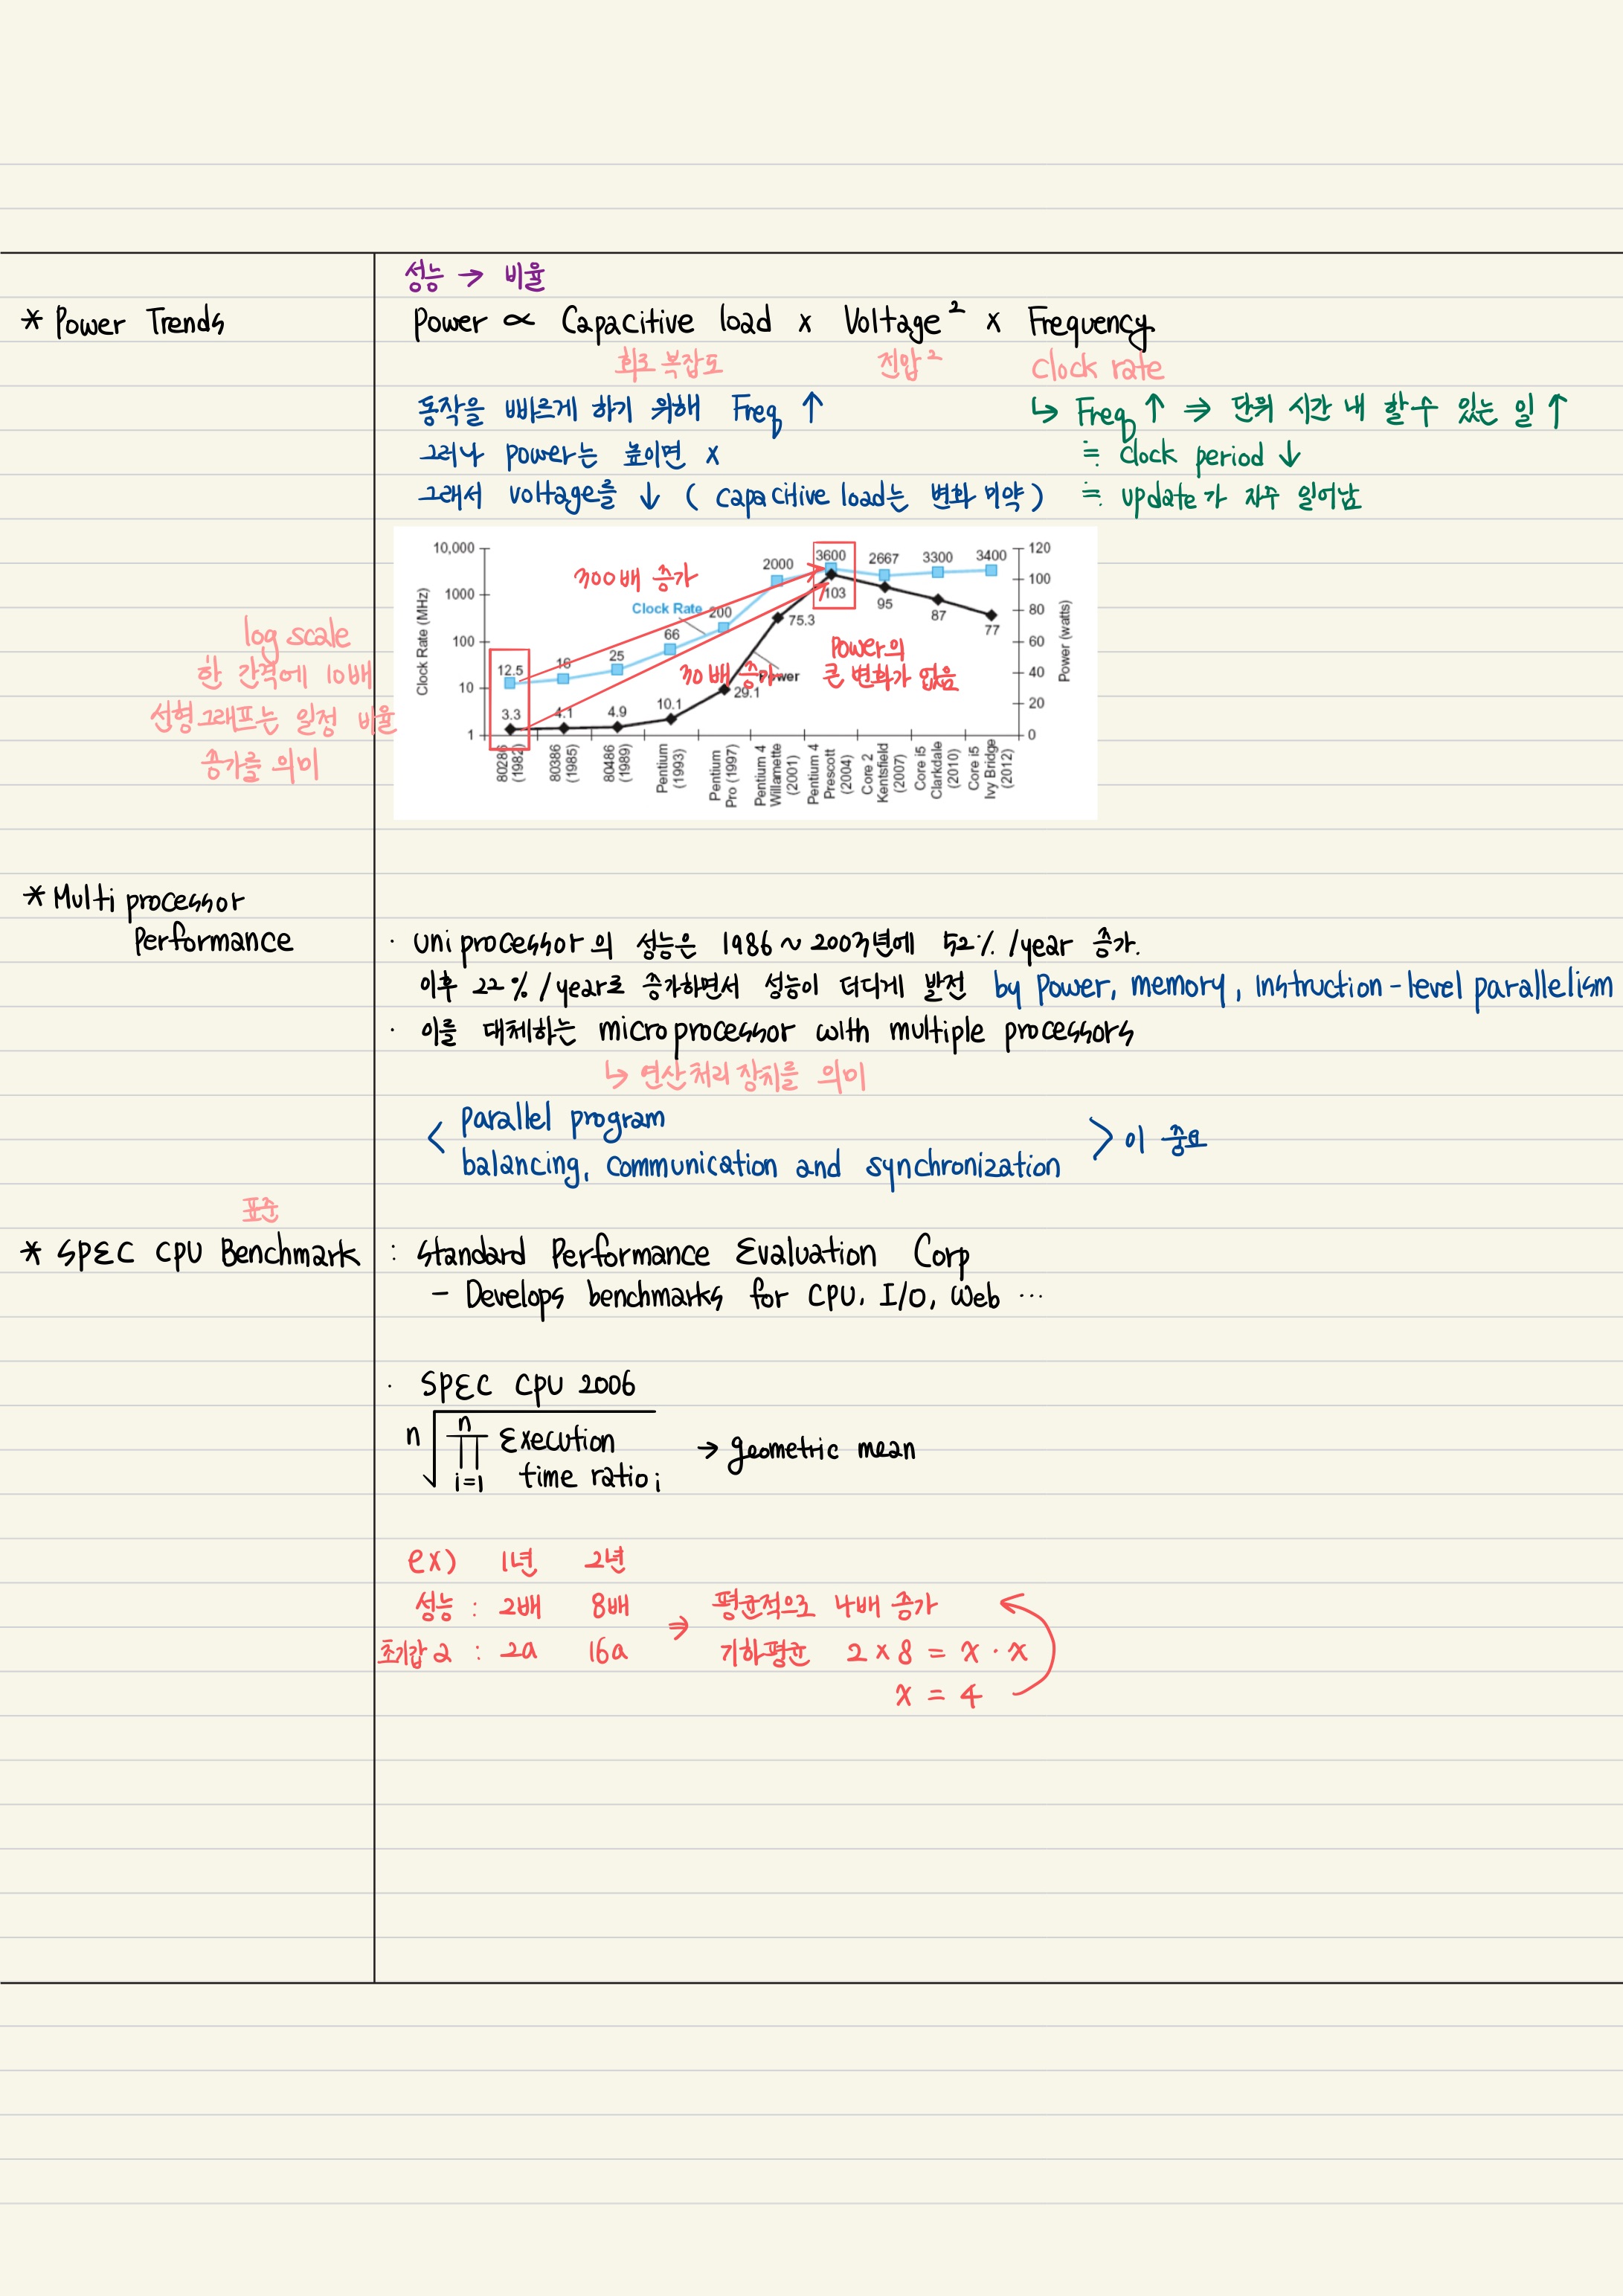 성능 → 비율
* Power Trends
Power ∝ Capacitive load x Voltage² x Frequency
회로 복잡도 전압² Clock rate
동작을 빠르게 하기 위해 Freq ↑
↳ Freq ↑ ⇒ 단위 시간 내 할 수 있는 일 ↑
그러나 power는 높이면 x
≒ Clock period ↓
그래서 voltage를 ↓ ( capacitive load는 변화 미약 )
≒ update가 자주 일어남
log scale
한 간격에 10배
선형그래프는 일정 비율
증가를 의미
Clock Rate (MHz)
10,000
1000
100
10
1
12.5 16 25 66 200 2000 3600 2667 3300 3400
3.3 4.1 4.9 10.1 29.1 75.3 103 95 87 77
300배 증가
Clock Rate
30배 증가
Power
Power의
큰 변화가 없음
120
100
80
60
40
20
0
Power (watts)
80286 (1982)
80386 (1985)
80486 (1989)
Pentium (1993)
Pentium Pro (1997)
Pentium 4 Willamette (2001)
Pentium 4 Prescott (2004)
Core 2 Kentsfield (2007)
Core i5 Clarkdale (2010)
Core i5 Ivy Bridge (2012)
* Multi processor
Performance
· uni processor의 성능은 1986 ~ 2003년에 52% /year 증가.
이후 22% /year로 증가하면서 성능이 더디게 발전 by power, memory, instruction-level parallelism
· 이를 대체하는 microprocessor with multiple processors
↳ 연산처리 장치를 의미
< parallel program
balancing, communication and synchronization > 이 중요
표준
* SPEC CPU Benchmark
: Standard Performance Evaluation Corp
- Develops benchmarks for CPU, I/O, Web ...
· SPEC CPU 2006
n√ n∏i=1 Execution time ratio i → geometric mean
ex) 1년 2년
성능 : 2배 8배 ⇒ 평균적으로 4배 증가
초기값 a : 2a 16a 기하평균 2 x 8 = x · x
x = 4